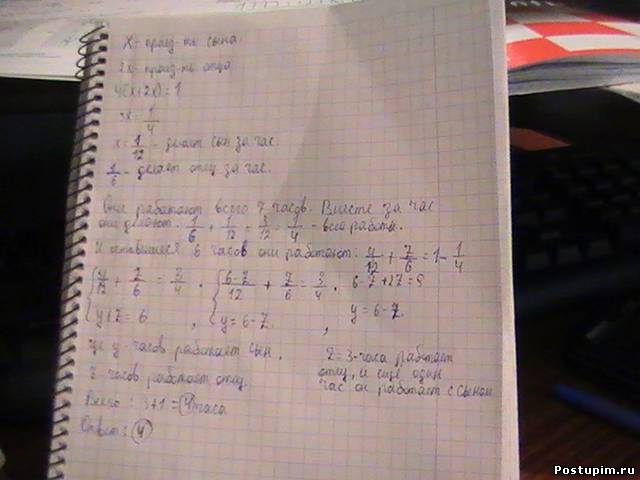 x - произ-ть сына.
2x - произ-ть отца
4(x+2x) = 1
3x = 1/4
x = 1/12 - делает сын за час.
1/6 - делает отец за час.
Они работают всего 7 часов. Вместе за час
они делают 1/6 + 1/12 = 3/12 = 1/4 - всей работы.
И оставшиеся 6 часов они работают: y/12 + z/6 = 1 - 1/4
{ y/12 + z/6 = 3/4 . { (6-z)/12 + z/6 = 3/4 . 6-z+2z = 9
y+z = 6 , y = 6-z. , y = 6-z.
где y - часов работает сын, z = 3 - часа работает
z часов работает отец. отец, и еще один
час он работает с сыном
Всего: 3+1 = 4 часа
Ответ: 4
Postupim.ru